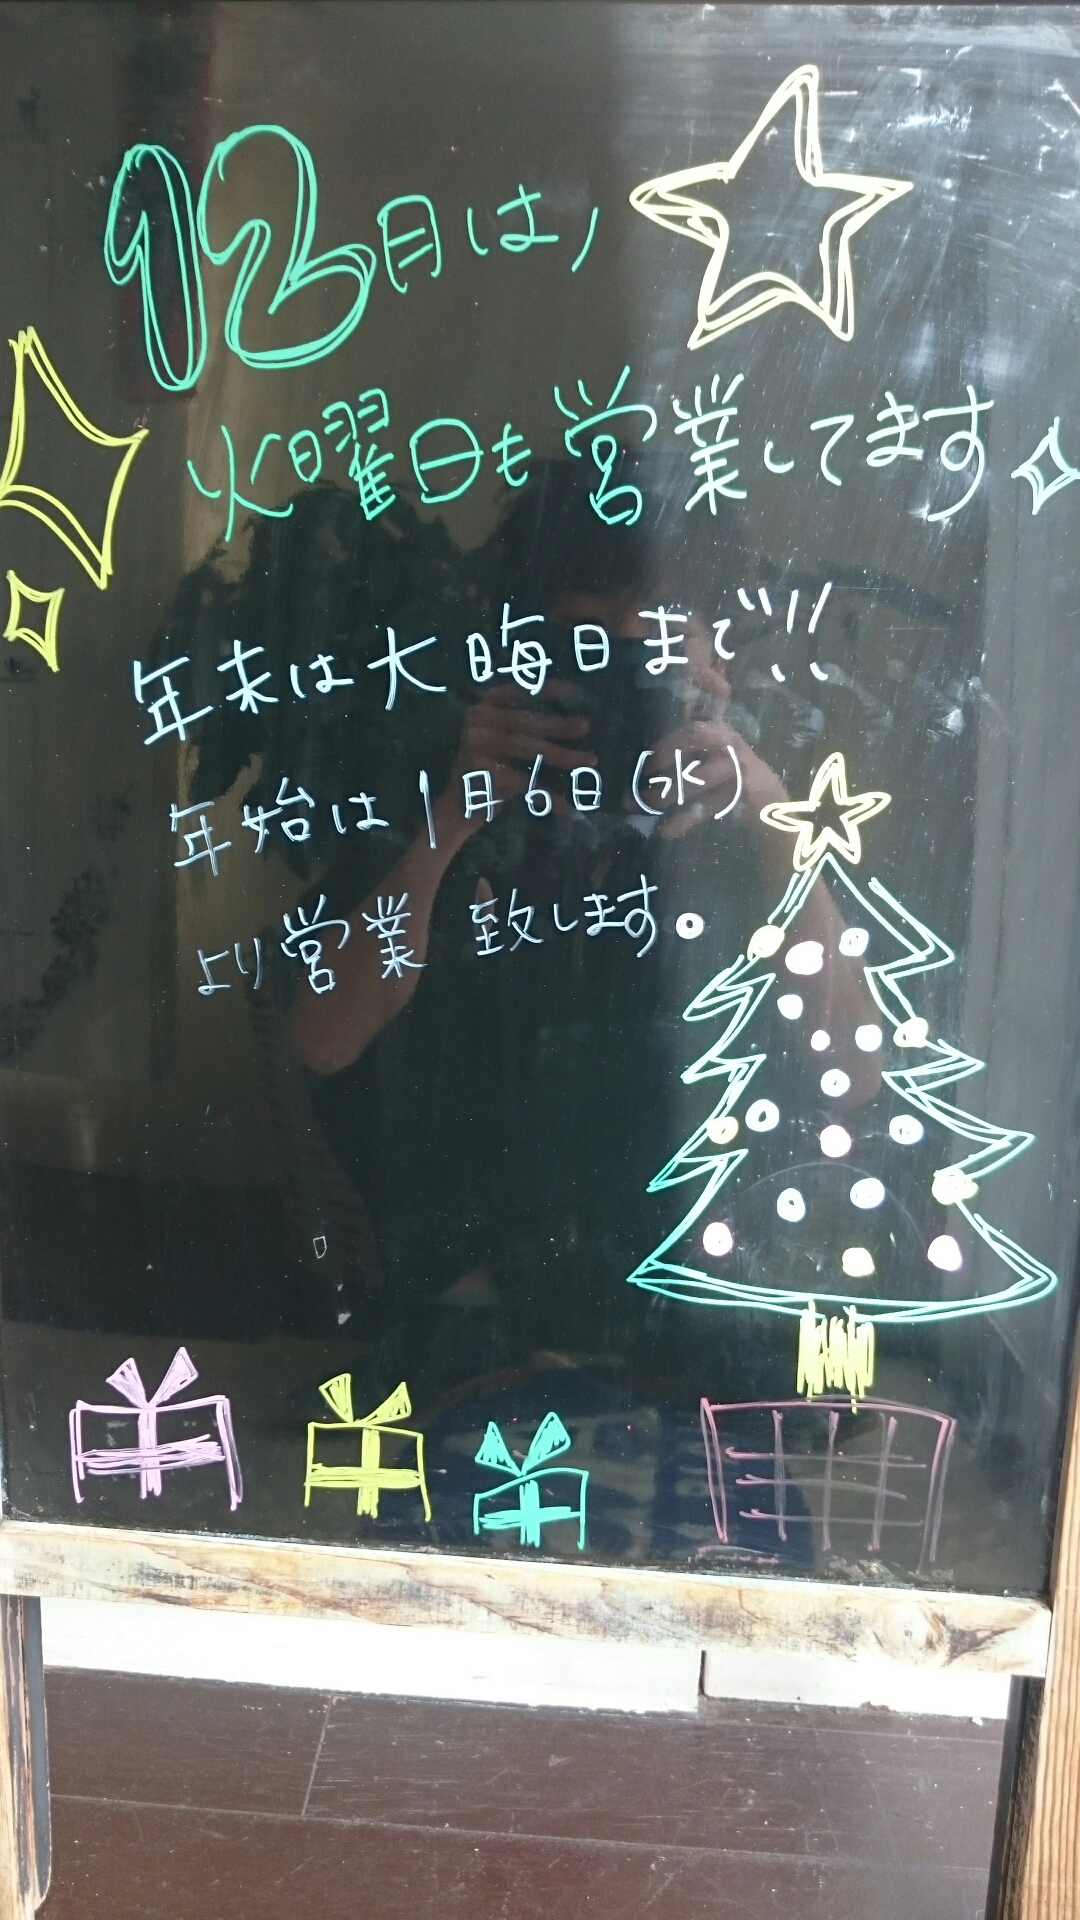 12月は、
火曜日も営業してます
年末は大晦日まで!!
年始は1月6日(水)
より営業致します。